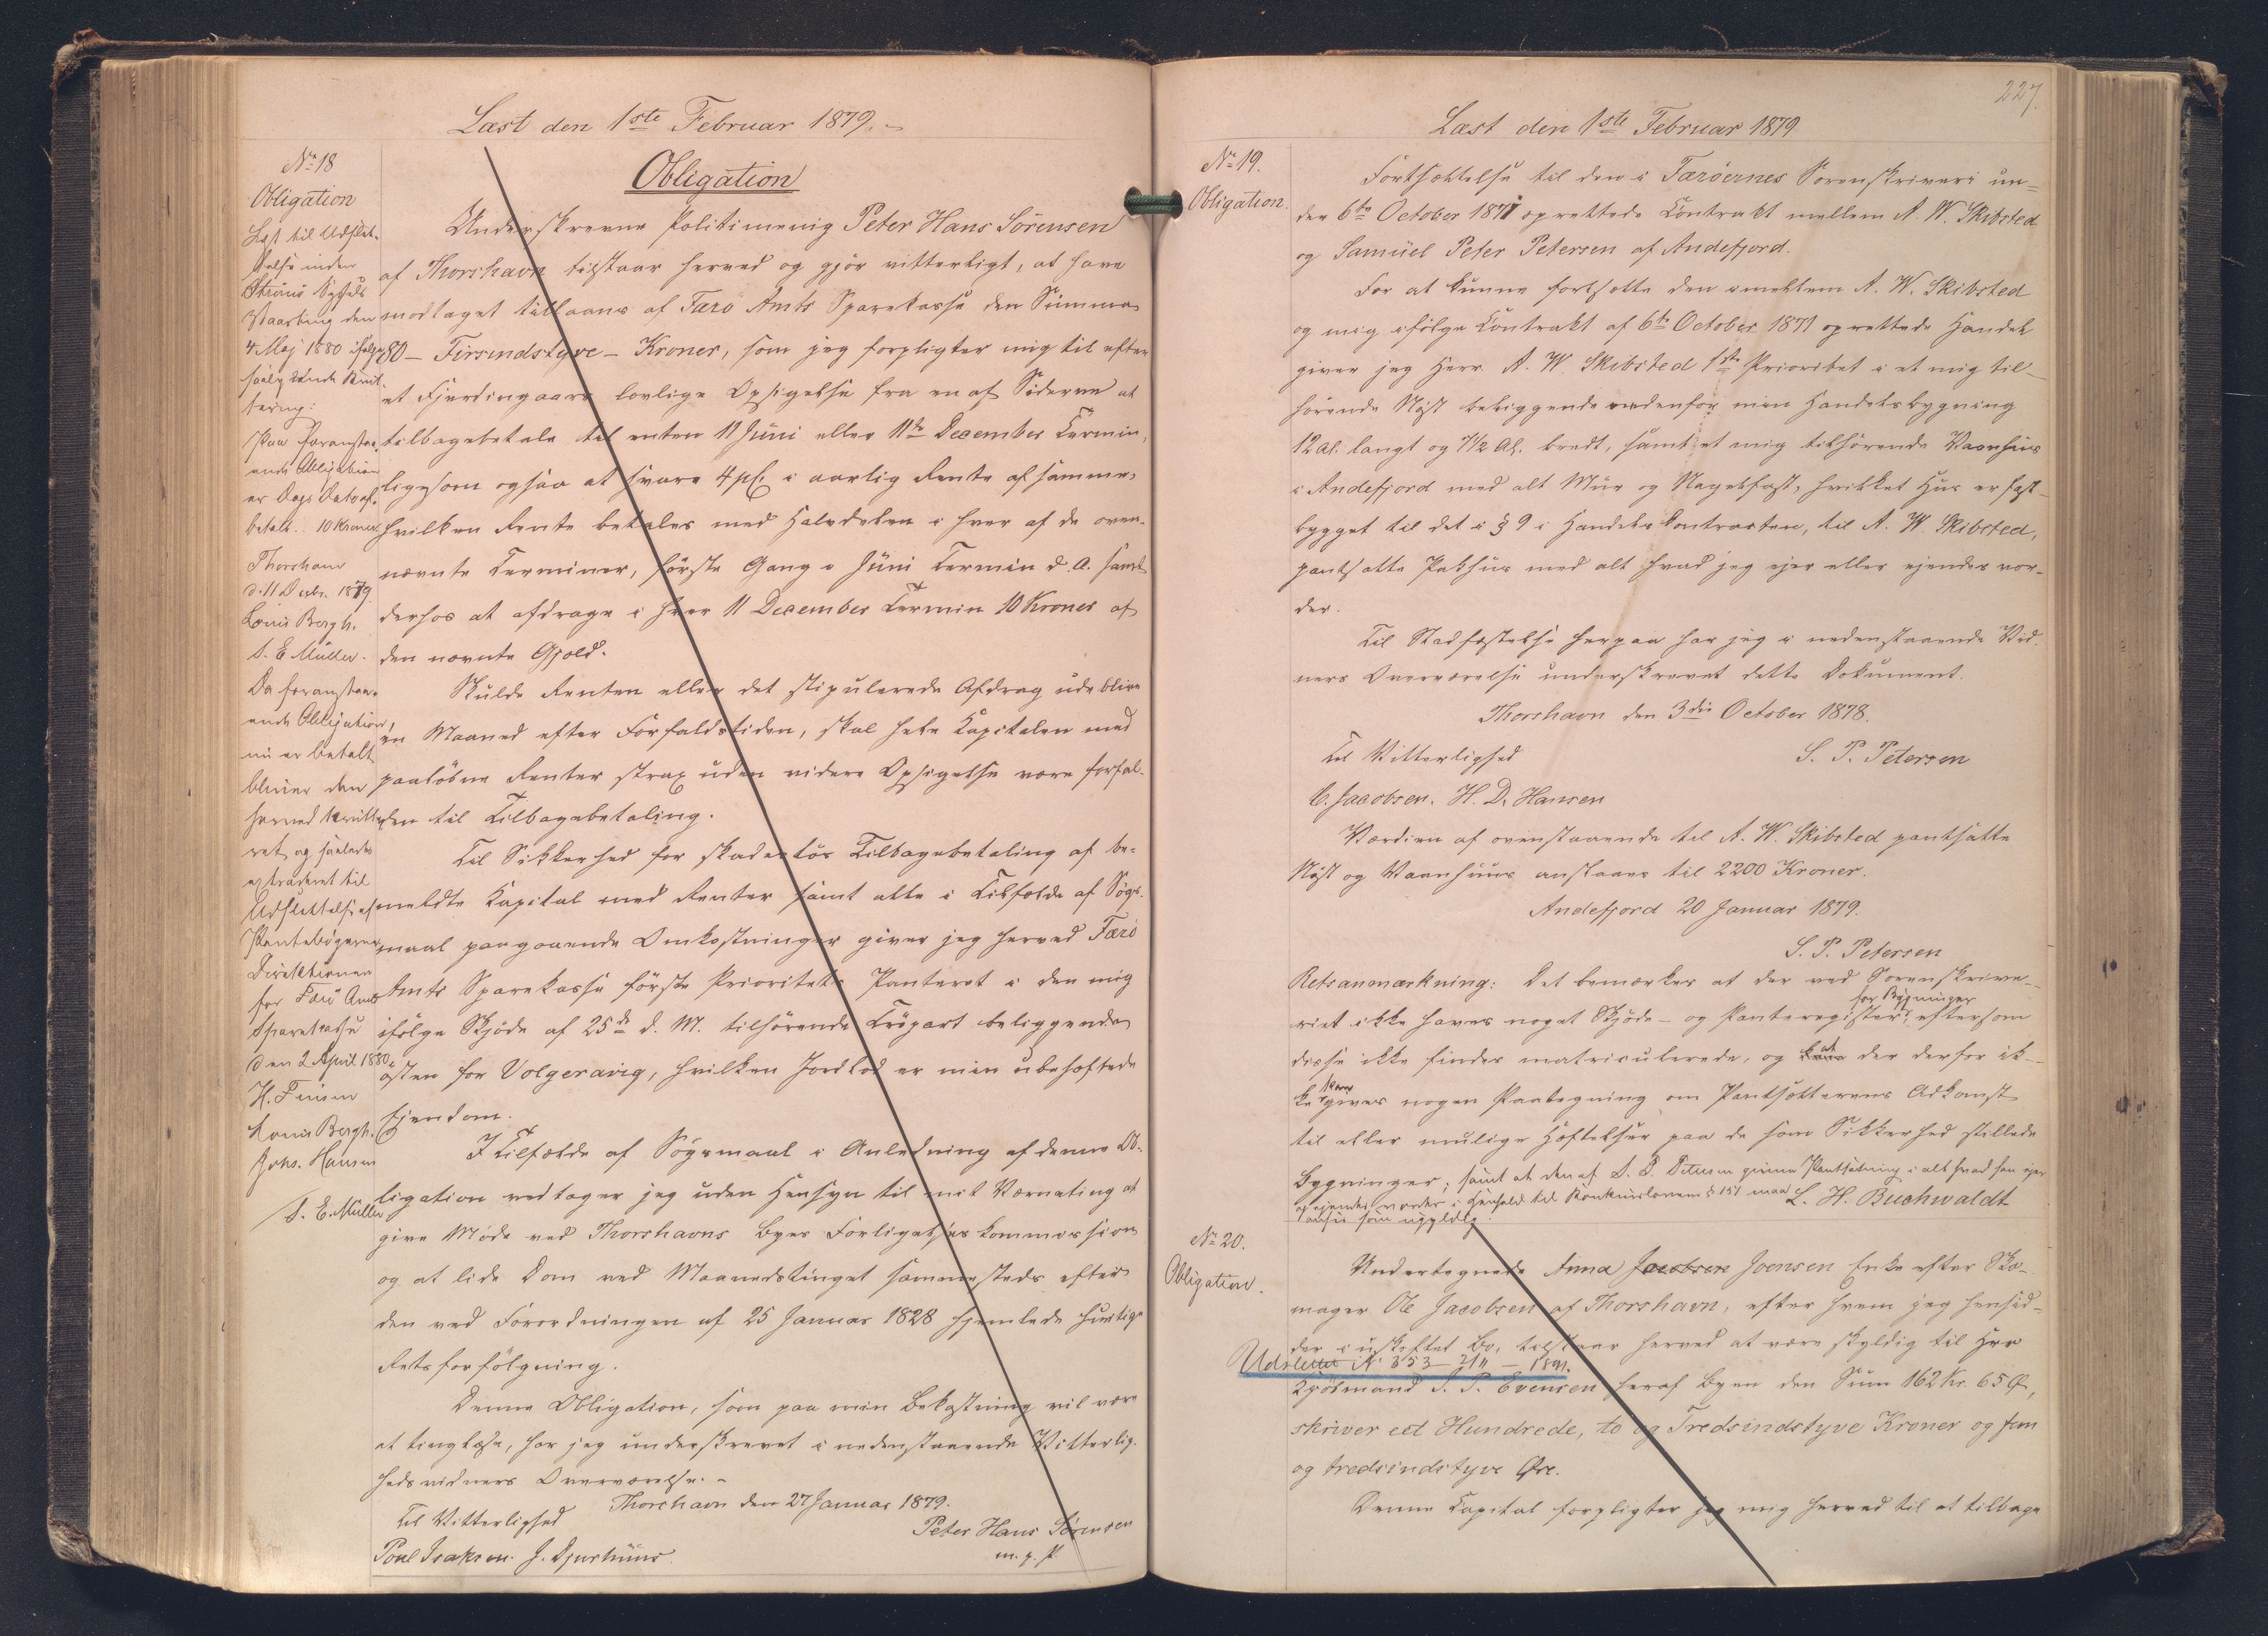 Læst den 1ste Februar 1879.
No 18
Obligation
Læst til Udslet-
telse inden
Strömö Syssels
Vaarting den
4 Maj 1880 ifølge
saalydende Kvit-
tering:
Paa foranstaa-
ende Obligation
er Dags Dato af-
betalt 10 Kroner
Thorshavn
d. 11 Decbr. 1879
Louis Bergh.
S. E. Müller.
Da foranstaa-
ende Obligation
nu er betalt
bliver den
herved kvitte-
ret og saaledes
extraderet til
Udslettelse af
Pantebøgerne
Direktionen
for Færö Amts
Sparekasse
den 2 April 1880
H. Finsen
Louis Bergh.
Johs. Hansen
S. E. Müller
Obligation
Underskrevne Politimenig Peter Hans Sörensen
af Thorshavn tilstaar herved og gjör vitterligt, at have
modtaget tillaans af Færö Amts Sparekasse den Summa
80 - Firsindstyve - Kroner, som jeg forpligter mig til efter
et Fjerdingaars lovlige Opsigelse fra en af Siderne at
tilbagebetale til enten 11 Juni eller 11te December Termin,
ligesom ogsaa at svare 4 pCt. i aarlig Rente af samme,
hvilken Rente betales med Halvdelen i hver af de oven-
nævnte Terminer, förste Gang i Juni Termin d. A. samt
derhos at afdrage i hver 11 December Termin 10 Kroner af
den nævnte Gjæld.
Skulde Renten eller det stipulerede Afdrag udeblive
en Maaned efter Forfaldstiden, skal hele Kapitalen med
paalöbne Renter strax uden videre Opsigelse være forfal-
den til Tilbagebetaling.
Til Sikkerhed for skadeslös Tilbagebetaling af be-
meldte Kapital med Renter samt alle i Tilfælde af Sögs-
maal paagaaende Omkostninger giver jeg herved Færö
Amts Sparekasse förste Prioritets Panteret i den mig
ifölge Skjöde af 25de d. M. tilhörende Tröpart beliggende
östen for Volgeravig, hvilken Jordlod er min ubehæftede
Ejendom.
I Tilfælde af Sögsmaal i Anledning af denne Ob-
ligation vedtager jeg uden Hensyn til mit Værneting at
give Möde ved Thorshavns Byes Forligelseskommission
og at lide Dom ved Maanedstinget sammesteds efter
den ved Forordningen af 25 Januar 1828 hjemlede hurtige
Retsforfölgning.
Denne Obligation, som paa min Bekostning vil være
at tinglæse, har jeg underskrevet i nedenstaaende Vitterlig-
hedsvidners Overværelse.
Thorshavn den 27 Januar 1879.
Til Vitterlighed
Peter Hans Sörensen
Poul Isaksen. J. Djurhuus.
m. p. P.
227.
Læst den 1ste Februar 1879
No 19.
Obligation.
Fortsættelse til den i Færöernes Sorenskriveri un-
der 6te October 1871 oprettede Contrakt mellem A. W. Skibsted
og Samüel Peter Petersen af Andefjord.
For at kunne fortsætte den imellem A. W. Skibsted
og mig ifölge Contrakt af 6te October 1871 oprettede Handel
giver jeg Herr A. W. Skibsted 1ste Prioritet i et mig til-
hörende Nöst beliggende nedenfor min Handelsbygning
12 Al. langt og 7 1/2 Al. bredt, samt et mig tilhörende Vaanhuus
i Andefjord med alt Muur og Nagelfast, hvilket Hus er fast-
bygget til det i § 9 i Handelskontracten, til A. W. Skibsted,
pantsatte Pakhus med alt hvad jeg ejer eller ejendes vor-
der.
Til Stadfæstelse herpaa har jeg i nedenstaaende Vid-
ners Overværelse underskrevet dette Dokument.
Thorshavn den 3die October 1878.
Til Vitterlighed
S. P. Petersen
C. Jacobsen. H. D. Hansen
Værdien af ovenstaaende til A. W. Skibsted pantsatte
Nöst og Vaanhuus anslaaes til 2200 Kroner.
Andefjord 20 Januar 1879.
S. P. Petersen
Retsanmærkning: Det bemærkes at der ved Sorenskrive-
riet ikke haves noget Skjöde- og Panteregister for Bygninger, eftersom
disse ikke findes matriculerede, og at der derfor ik-
ke kan gives nogen Paategning om Pantsætterens Adkomst
til eller mulige Hæftelser paa de som Sikkerhed stillede
Bygninger; samt at den af S. P. Petersen givne Pantsætning i alt hvad han ejer
og ejendes vorder i Henhold til Konkurslovens § 151 maa
ansees som ugyldig.
L. H. Buchwaldt
No 20.
Obligation.
Undertegnede Anna Jacobsen Joensen Enke efter Sko-
mager Ole Jacobsen af Thorshavn, efter hvem jeg hensid-
der i uskiftet Bo, tilstaar herved at være skyldig til Herr
Udslettet No 353 - 21/11 - 1891.
Kjöbmand J. P. Evensen heraf Byen den Sum 162 Kr. 65 Ø,
skriver eet Hundrede, to og Tredsindstyve Kroner og fem
og tredsindstyve Øre.
Denne Capital forpligter jeg mig herved til at tilbage